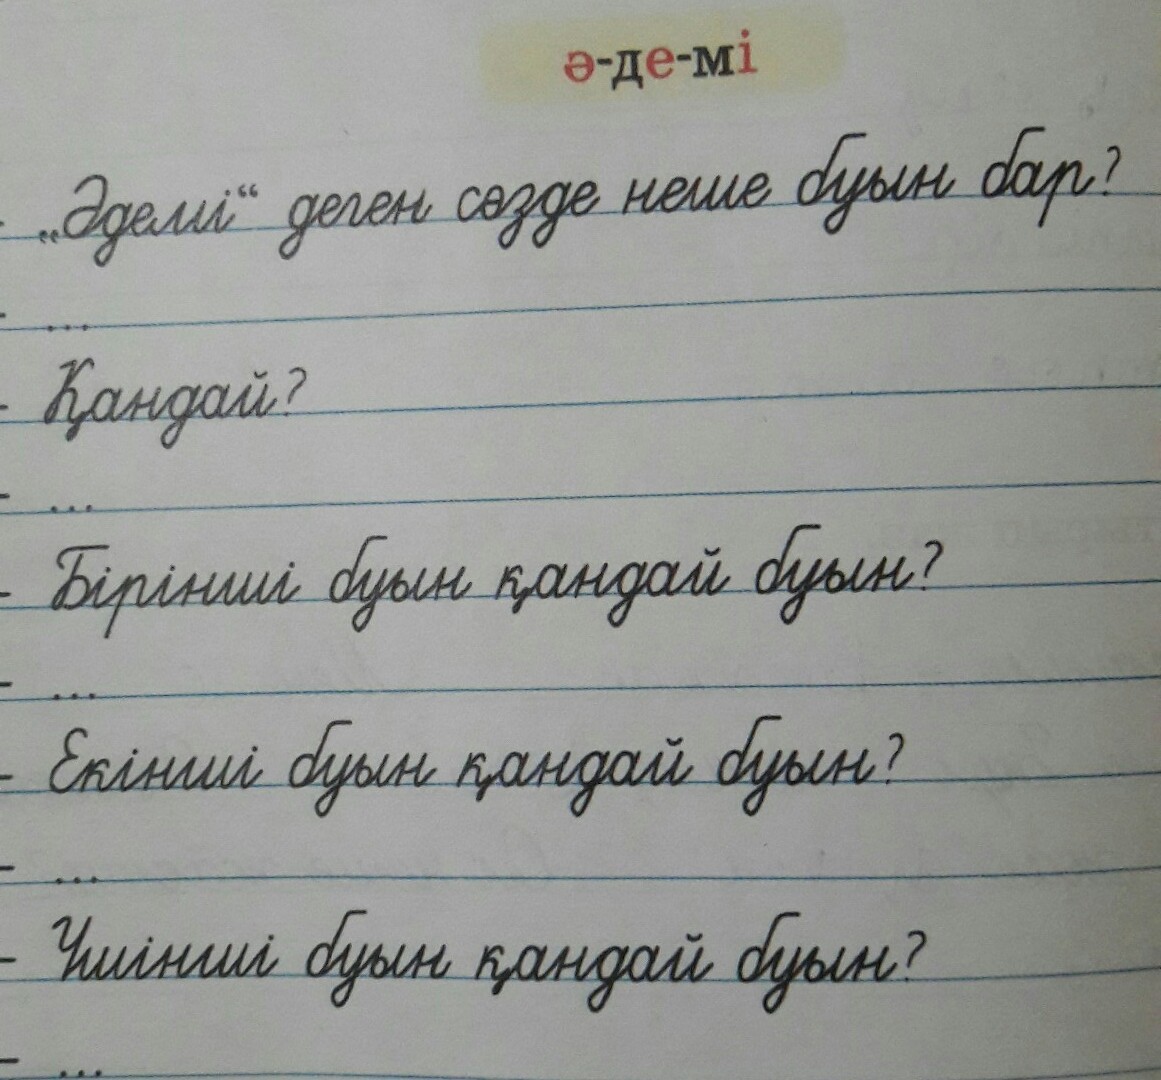 ә-де-мі
- „Әдемі“ деген сөзде неше буын бар?
- ...
- Қандай?
- ...
- Бірінші буын қандай буын?
- ...
- Екінші буын қандай буын?
- ...
- Үшінші буын қандай буын?
- ...